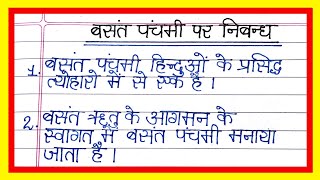 बसंत पंचमी पर निबन्ध
1. बसंत पंचमी हिन्दुओं के प्रसिद्ध
त्योहारों में से एक है ।
2. बसंत ऋतु के आगमन के
स्वागत में बसंत पंचमी मनाया
जाता है ।